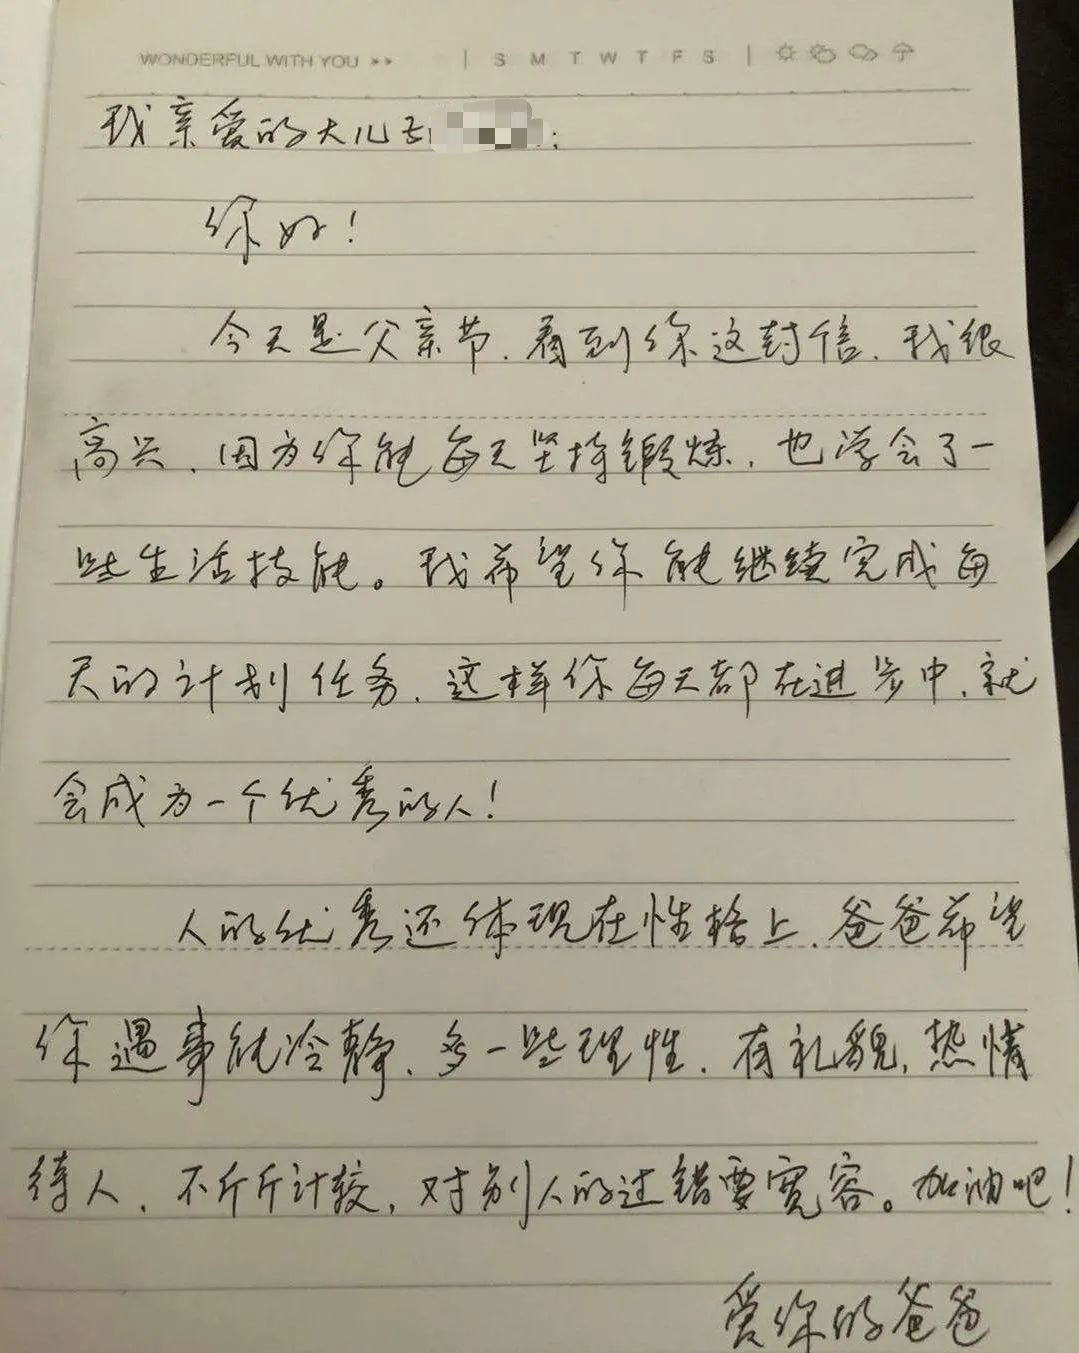 WONDERFUL WITH YOU >> | S M T W T F S |
我亲爱的大儿子:
你好!
今天是父亲节,看到你这封信,我很
高兴,因为你能每天坚持锻炼,也学会了一
些生活技能。我希望你能继续完成每
天的计划任务,这样你每天都在进步中,就
会成为一个优秀的人!
人的优秀还体现在性格上,爸爸希望
你遇事能冷静,多一些理性,有礼貌,热情
待人,不斤斤计较,对别人的过错要宽容。加油吧!
爱你的爸爸